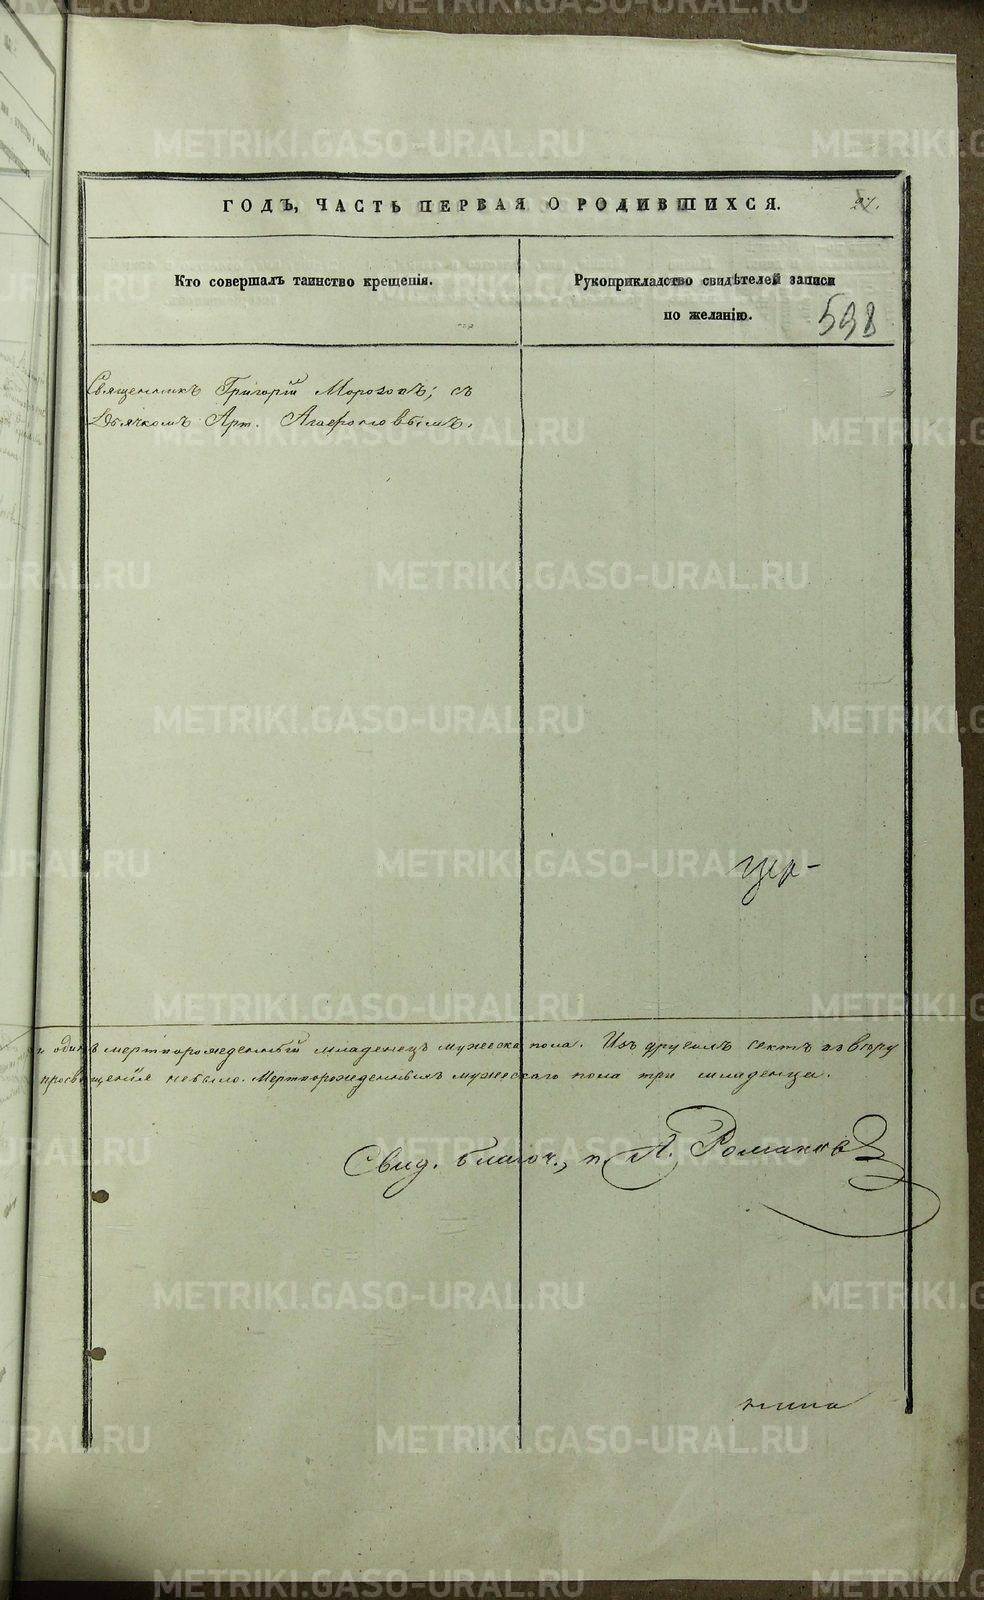 ГОДЪ, ЧАСТЬ ПЕРВАЯ О РОДИВШИХСЯ. 27.
Кто совершалъ таинство крещенія.
Рукоприкладство свидѣтелей записи
по желанію.
598
Священникъ Григорій Морозовъ; съ
Дьячкомъ Арт. Агафоновымъ.
цер-
и одинъ мертворожденный младенецъ мужеска пола. Изъ другихъ сектъ въ вѣру
просвѣщенія небыло. Мертворожденныхъ мужескаго пола три младенца.
Свид. благоч., п. А. Романовъ
METRIKI.GASO-URAL.RU